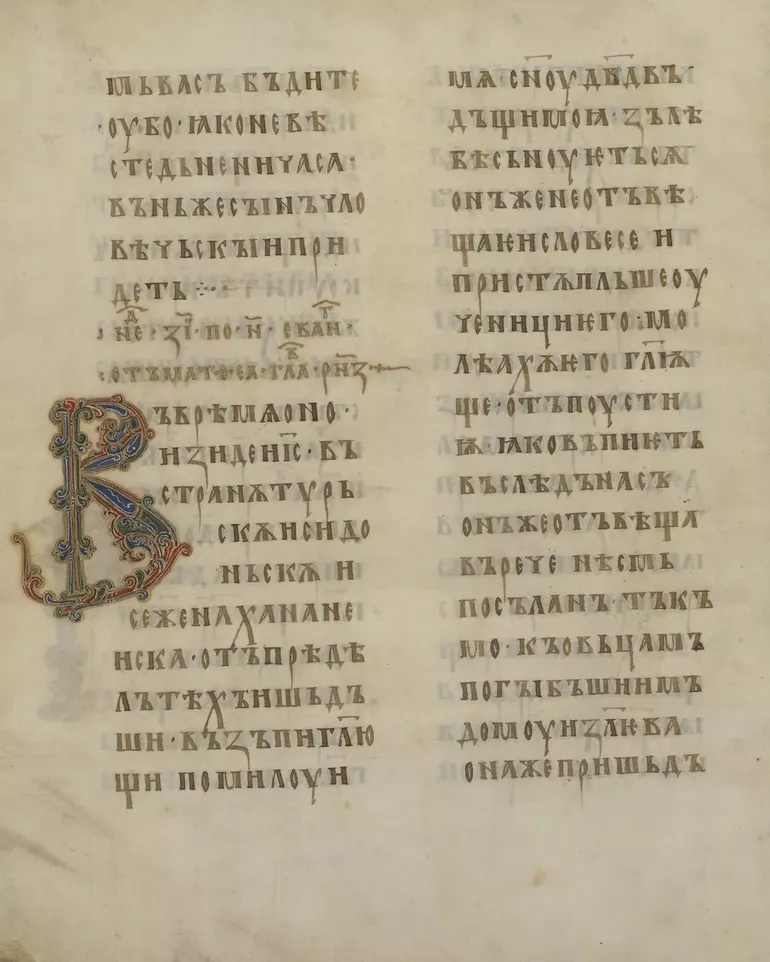 мь васъ бъдите
·оубо· ꙗко не вѣ
сте дьне ни часа·
въ ньже сꙑнъ чло
вѣчьскꙑи при
деть ⁘
не҃ д҃ ꙁ҃ı· по н҃· еван҃т·
отъ матѳеа· гла҃в· рн҃ꙁ
Въ врѣмѧ оно·
иꙁиде і҃с· въ
странѫ турь
скѫ и сидо
ньскѫ и
се жена ханане
иска· отъ прѣдѣ
лъ тѣхъ ишьдъ
ши· въꙁъпи гл҃ю
щи помилоуи
мѧ· сн҃оу дв҃двъ·
дъщи моꙗ· ꙁълѣ
бѣсьноуѥтьсѧ
онъ же не отъвѣ
ща ѥи словесе и
пристѫпльше оу
ченици ѥго· мо
лѣахѫ ѥго гл҃ѭ
ще· отъпоусти
ѭ· ꙗко въпиѥть
въ слѣдъ насъ
онъ же отъвѣща
въ рече нѣсмь
посъланъ· тъкъ
мо· къ овьцамъ
погꙑбъшиимъ
домоу иꙁл҃ѥва
она же пришьдъ